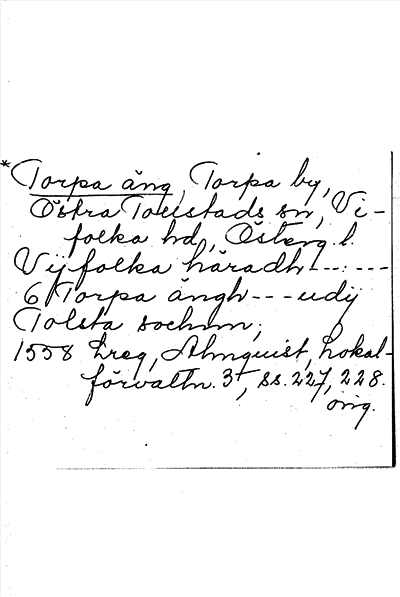 * Torpa äng, Torpa by,
Östra Tollstads sn, Vi-
folka hd, Österg. l.
Vijfolka häradh---:---
6 Torpa ängh---udij
Tolsta sochnn;
1558 Lreg, Almquist, Lokal-
förvaltn. 3, ss. 227, 228.
orig.